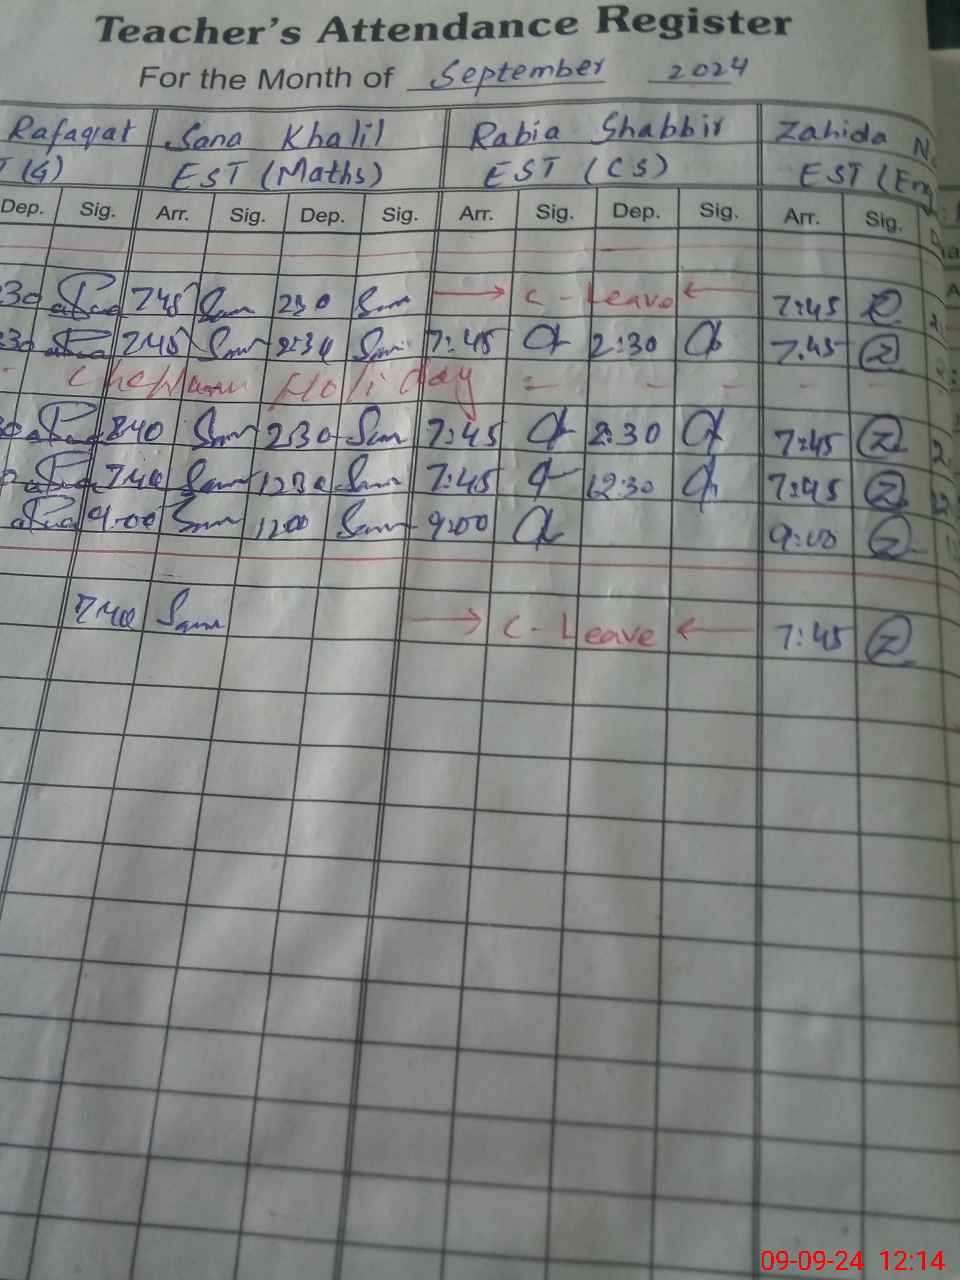 Teacher's Attendance Register
For the Month of September 2024
Rafaqat Sana Khalil Rabia Shabbir Zahida N.
T (G) EST (Maths) EST (CS) EST (Eng
Dep. Sig. Arr. Sig. Dep. Sig. Arr. Sig. Dep. Sig. Arr. Sig.
30 745 Sam 230 Sam C-Leave 7:45
30 745 Sam 2:30 Sam 7:45 2:30 7:45 Z
Holiday
30 840 Sam 230 Sam 7:45 2:30 7:45 Z
740 Sam 1230 Sam 7:45 12:30 7:45 Z
9:00 Sam 1200 Sam 9:00 9:00 Z
740 Sam C-Leave 7:45 Z
09-09-24 12:14